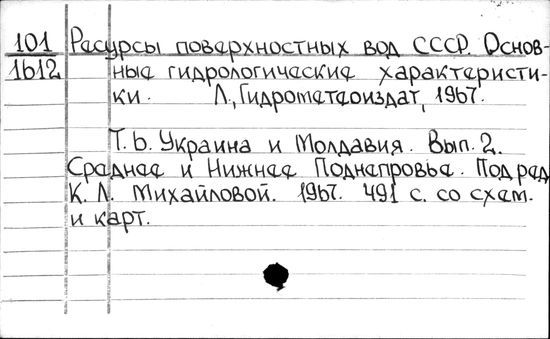 101 Ресурсы поверхностных вод СССР. Основ-
1612 ные гидрологические характеристи-
ки. Л., Гидрометеоиздат, 1967.
Т. 6. Украина и Молдавия. Вып. 2.
Среднее и Нижнее Поднепровье. Под ред.
К. Л. Михайловой. 1967. 491 с. со схем.
и карт.